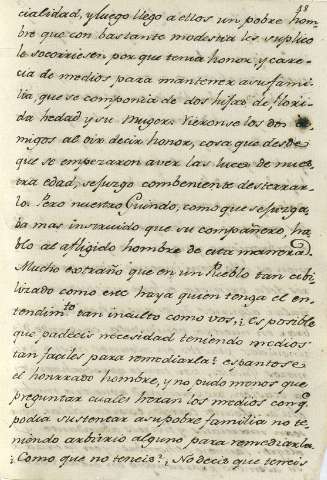 48
cialidad, y luego llegó a ellos un pobre hom
bre que con bastante modestia les suplicó
le socorriesen, por que tenia honor, y care-
cia de medios para mantener a su fami-
lia, que se componia de dos hijas de flori-
da hedad y su muger. Rieronse los dos
migos al oir decir honor, cosa que desde
que se empezaron a ver las luces de nues
tra edad, se juzgó combeniente desterrar-
lo. Pero nuestro Guindo, como que se juzga-
ba mas instruido que su compañero, ha
bló al afligido hombre de esta manera.
Mucho extraño que en un Pueblo tan cibi-
lizado como este haya quien tenga el en-
tendim.to tan inculto como vos, ¿es posible
que padecis necesidad teniendo medios
tan faciles para remediarla? espantose
el honrrado hombre, y no pudo menos que
preguntar cuales heran los medios con q.
podia sustentar a su pobre familia no te-
niendo arbitrio alguno para remediarla.
¿Como que no teneis? ¿No decis que teneis